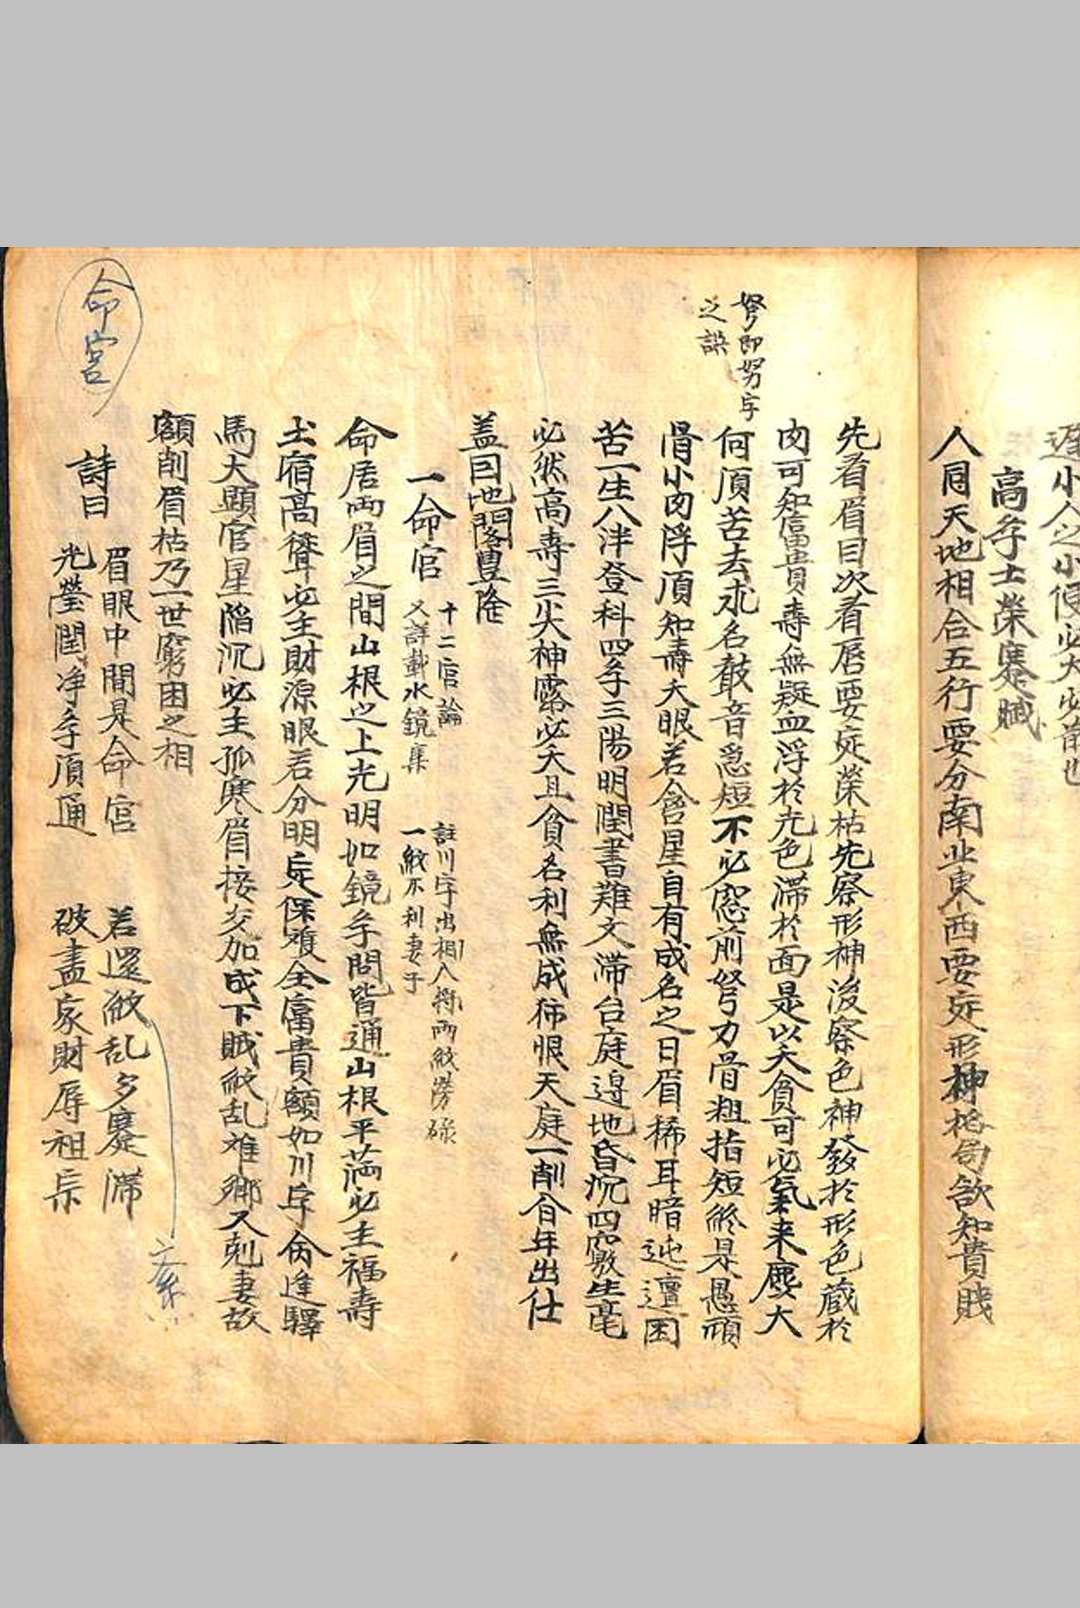 遅小人之小便必大必首也
高孛士榮蹇賦
人肙天地相合五行要分南北東西要㝎形神格局欲知貴賤
先看眉目次看唇要㝎榮枯先察形神後察色神發於形色蔵於
肉可知富貴壽無疑血浮於光色滞於面是以夭貪可必氣来塵大
弩即努字
之誤
何湏苦去求名敲音急短不必窓前弩力骨粗指短終是愚頑
骨小肉浮湏知壽夭眼若含星自有成名之日眉稀耳暗迍邅困
苦一生八泮登科四孛三陽明潤書難文滞台庭邉地昏沉四竅生毫
必然高壽三尖神露必夭且貧名利無成㤄恨天庭一削合年出仕
盖曰地閣豊隆
一命官
十二官論
又詳載水鏡集
註川字出相入將兩紋勞碌
一紋不利妻子
命居兩眉之間山根之上光明如鏡孛問皆通山根平滿必主福壽
土宿高聳必主財源眼若分明㝎保𩀱全富貴額如川字命逢驛
馬大顯官星陷沉必主孤寒眉接交加成下賊紋乱难鄉又剋妻故
額削眉枯乃一世窮困之相
命宮
詩曰
眉眼中間是命官
光瑩潤净孛湏通
若還紋乱多蹇滞
破盡家財辱祖宗
紊